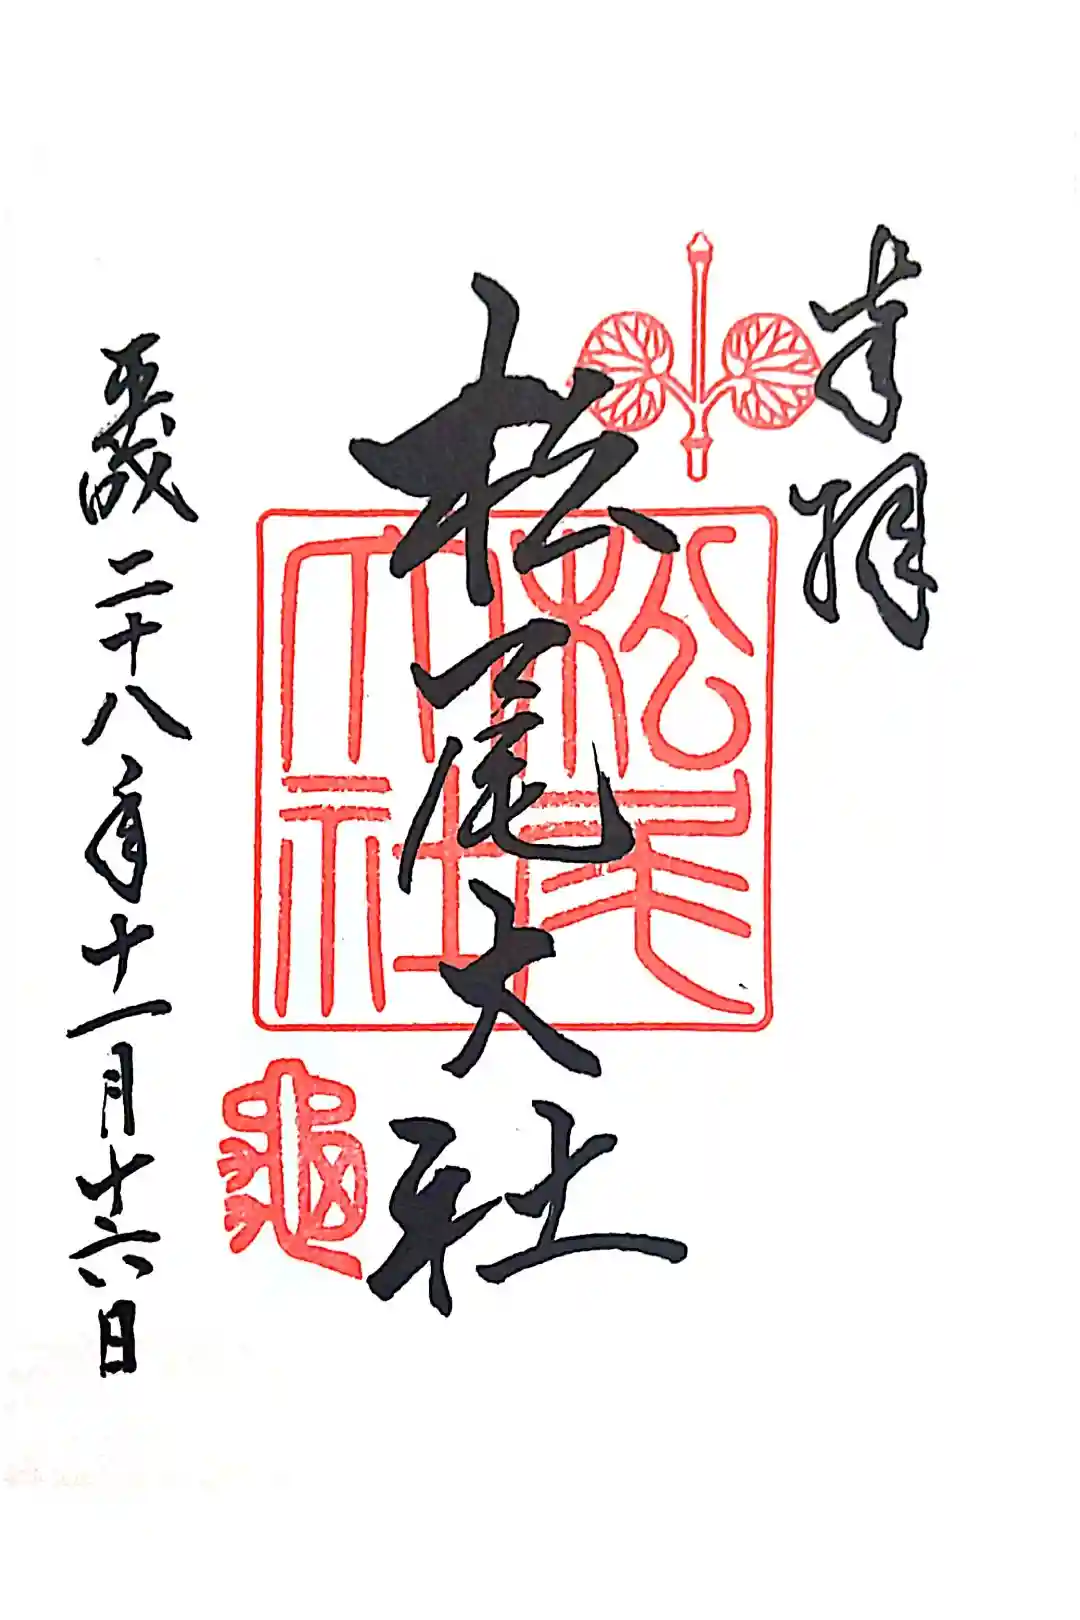 奉拝
松尾大社
松尾
大社
亀
平成二十八年十一月十六日